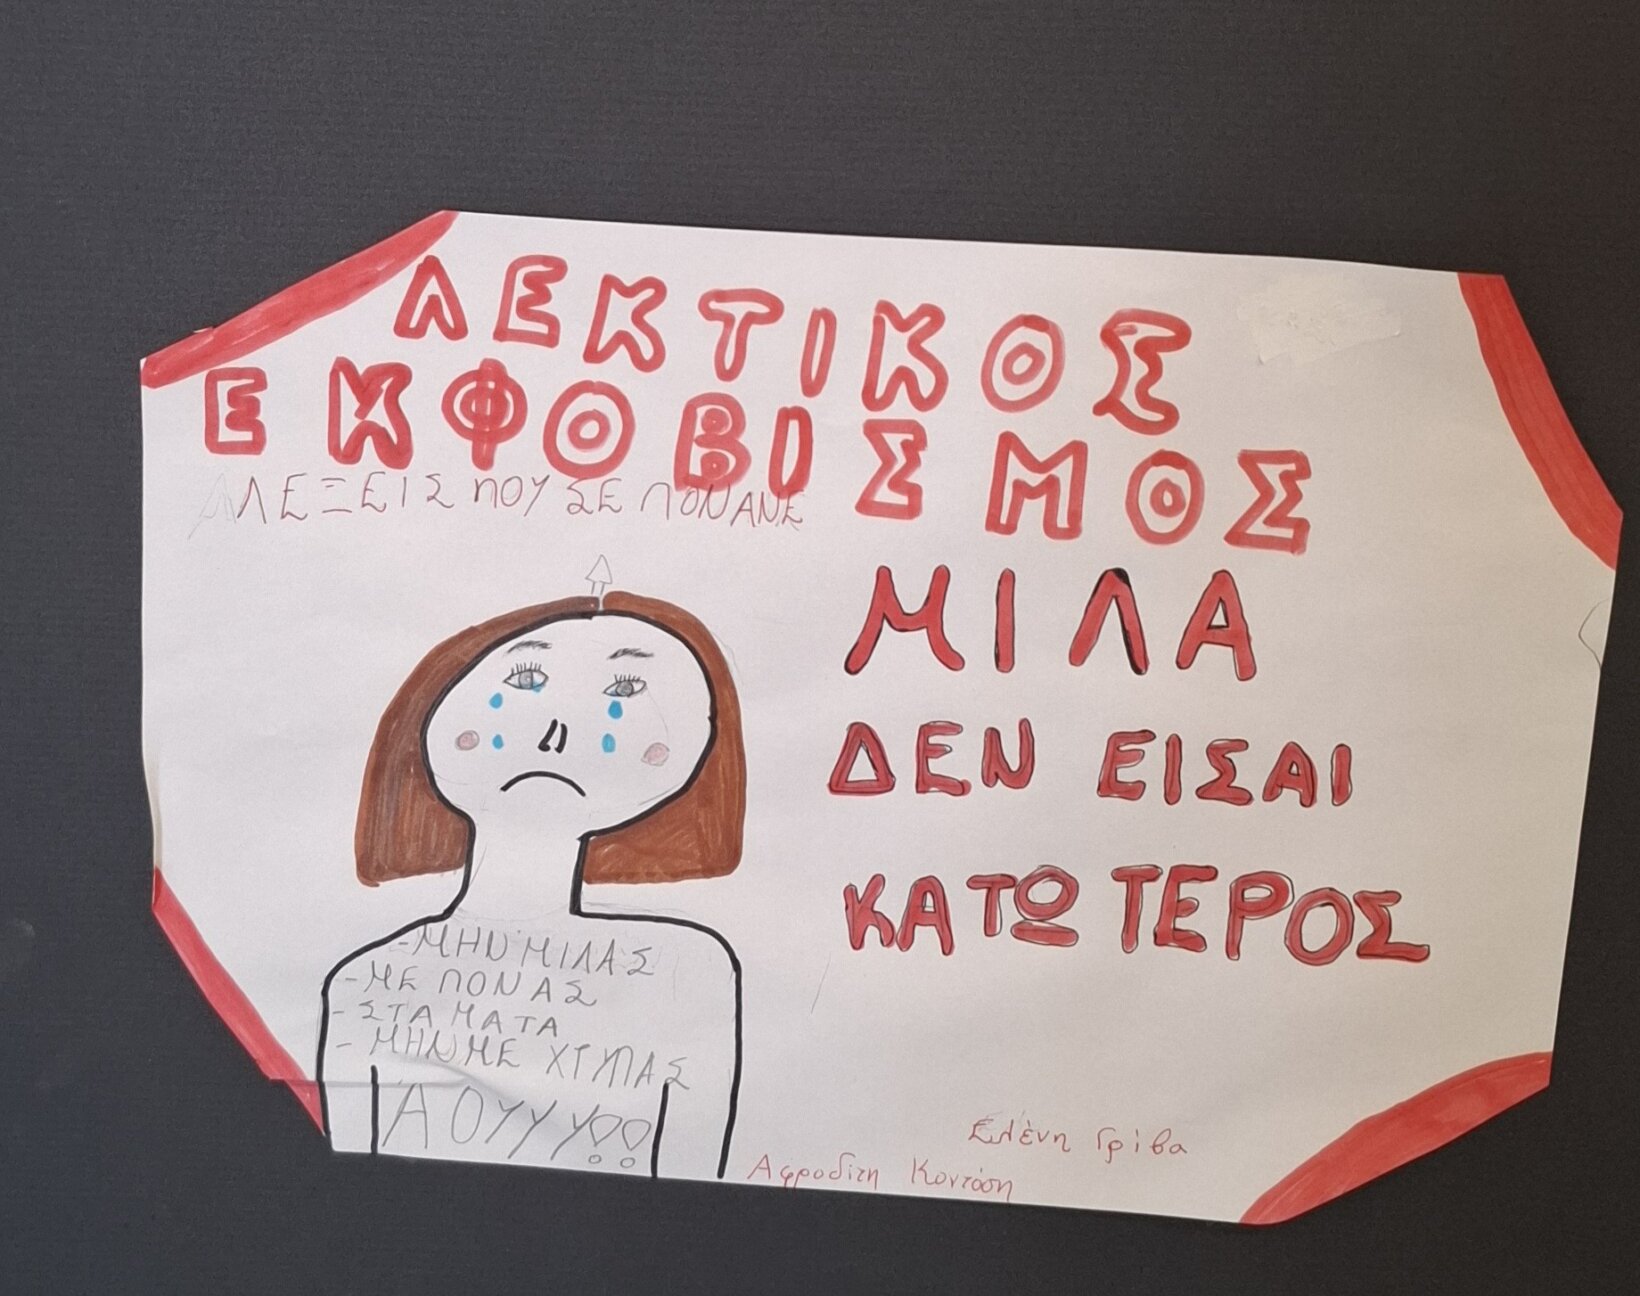 ΛΕΚΤΙΚΟΣ
ΕΚΦΟΒΙΣΜΟΣ
ΛΕΞΕΙΣ ΠΟΥ ΣΕ ΠΟΝΑΝΕ
ΜΙΛΑ
ΔΕΝ ΕΙΣΑΙ
ΚΑΤΩΤΕΡΟΣ
-ΜΗΝ ΜΙΛΑΣ
-ΜΕ ΠΟΝΑΣ
-ΣΤΑΜΑΤΑ
-ΜΗΝ ΜΕ ΧΤΥΠΑΣ
ΑΟΥΥΥ!!
Ελένη Γρίβα
Αφροδίτη Κοντάση